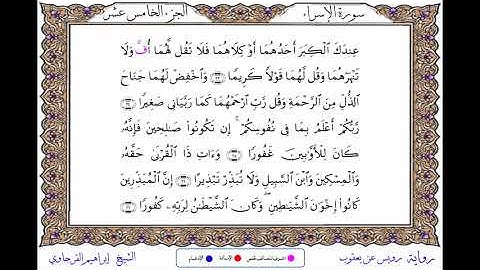 سورة الإسراء الجزء الخامس عشر
عِندَكَ ٱلْكِبَرَ أَحَدُهُمَا أَوْ كِلَاهُمَا فَلَا تَقُل لَّهُمَا أُفَّ وَلَا
تَنْهَرْهُمَا وَقُل لَّهُمَا قَوْلًا كَرِيمًا ۝ وَٱخْفِضْ لَهُمَا جَنَاحَ
ٱلذُّلِّ مِنَ ٱلرَّحْمَةِ وَقُل رَّبِّ ٱرْحَمْهُمَا كَمَا رَبَّيَانِى صَغِيرًا ۝
رَّبُّكُمْ أَعْلَمُ بِمَا فِى نُفُوسِكُمْ ۚ إِن تَكُونُوا۟ صَـٰلِحِينَ فَإِنَّهُۥ
كَانَ لِلْأَوَّٰبِينَ غَفُورًا ۝ وَءَاتِ ذَا ٱلْقُرْبَىٰ حَقَّهُۥ
وَٱلْمِسْكِينَ وَٱبْنَ ٱلسَّبِيلِ وَلَا تُبَذِّرْ تَبْذِيرًا ۝ إِنَّ ٱلْمُبَذِّرِينَ
كَانُوٓا۟ إِخْوَٰنَ ٱلشَّيَـٰطِينِ ۖ وَكَانَ ٱلشَّيْطَـٰنُ لِرَبِّهِۦ كَفُورًا ۝
رواية رويس عن يعقوب الشيخ إبراهيم الفرجاوي